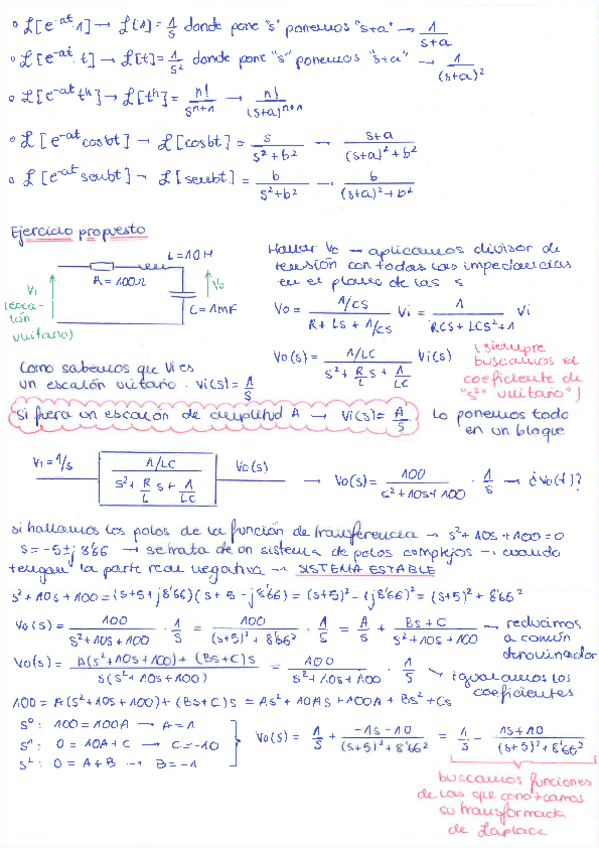 ° ℒ[e^-at · 1] → ℒ[1] = 1/s donde pone "s" ponemos "s+a" → 1/(s+a)
° ℒ[e^-at · t] → ℒ[t] = 1/s² donde pone "s" ponemos "s+a" → 1/(s+a)²
° ℒ[e^-at t^n] → ℒ[t^n] = n!/s^(n+1) → n!/(s+a)^(n+1)
° ℒ[e^-at cosbt] → ℒ[cosbt] = s/(s²+b²) → (s+a)/((s+a)²+b²)
° ℒ[e^-at senbt] → ℒ[senbt] = b/(s²+b²) → b/((s+a)²+b²)
Ejercicio propuesto
L=10H
R=100Ω
C=1mF
Vo
Vi
(esca-
lón
unitario)
Hallar Vo → aplicamos divisor de
tensión con todas las impedancias
en el plano de las s
Vo = (1/Cs)/(R+Ls+1/Cs) Vi = 1/(RCs+LCs²+1) Vi
Vo(s) = (1/LC)/(s²+(R/L)s+1/LC) Vi(s)
(siempre
buscamos el
coeficiente de
"s²" unitario)
Como sabemos que Vi es
un escalón unitario · Vi(s) = 1/s
si fuera un escalón de amplitud A → Vi(s) = A/s
Lo ponemos todo
en un bloque
Vi=1/s
(1/LC)/(s²+(R/L)s+1/LC)
Vo(s)
→ Vo(s) = 100/(s²+10s+100) · 1/s → ¿Vo(t)?
si hallamos los polos de la función de transferencia → s²+10s+100=0
s=-5±j8'66 → se trata de un sistema de polos complejos → cuando
tengan la parte real negativa → SISTEMA ESTABLE
s²+10s+100 = (s+5+j8'66)(s+5-j8'66) = (s+5)²-(j8'66)² = (s+5)²+8'66²
Vo(s) = 100/(s²+10s+100) · 1/s = 100/((s+5)²+8'66²) · 1/s = A/s + (Bs+C)/(s²+10s+100) → reducimos
a común
denominador
Vo(s) = (A(s²+10s+100)+(Bs+C)s)/(s(s²+10s+100)) = 100/(s²+10s+100) · 1/s → igualamos los
coeficientes
100 = A(s²+10s+100)+(Bs+C)s = As²+10As+100A+Bs²+Cs
s⁰: 100=100A → A=1
s¹: 0=10A+C → C=-10
s²: 0=A+B → B=-1
Vo(s) = 1/s + (-1s-10)/((s+5)²+8'66²) = 1/s - (1s+10)/((s+5)²+8'66²)
buscamos funciones
de las que conozcamos
su transformada
de Laplace